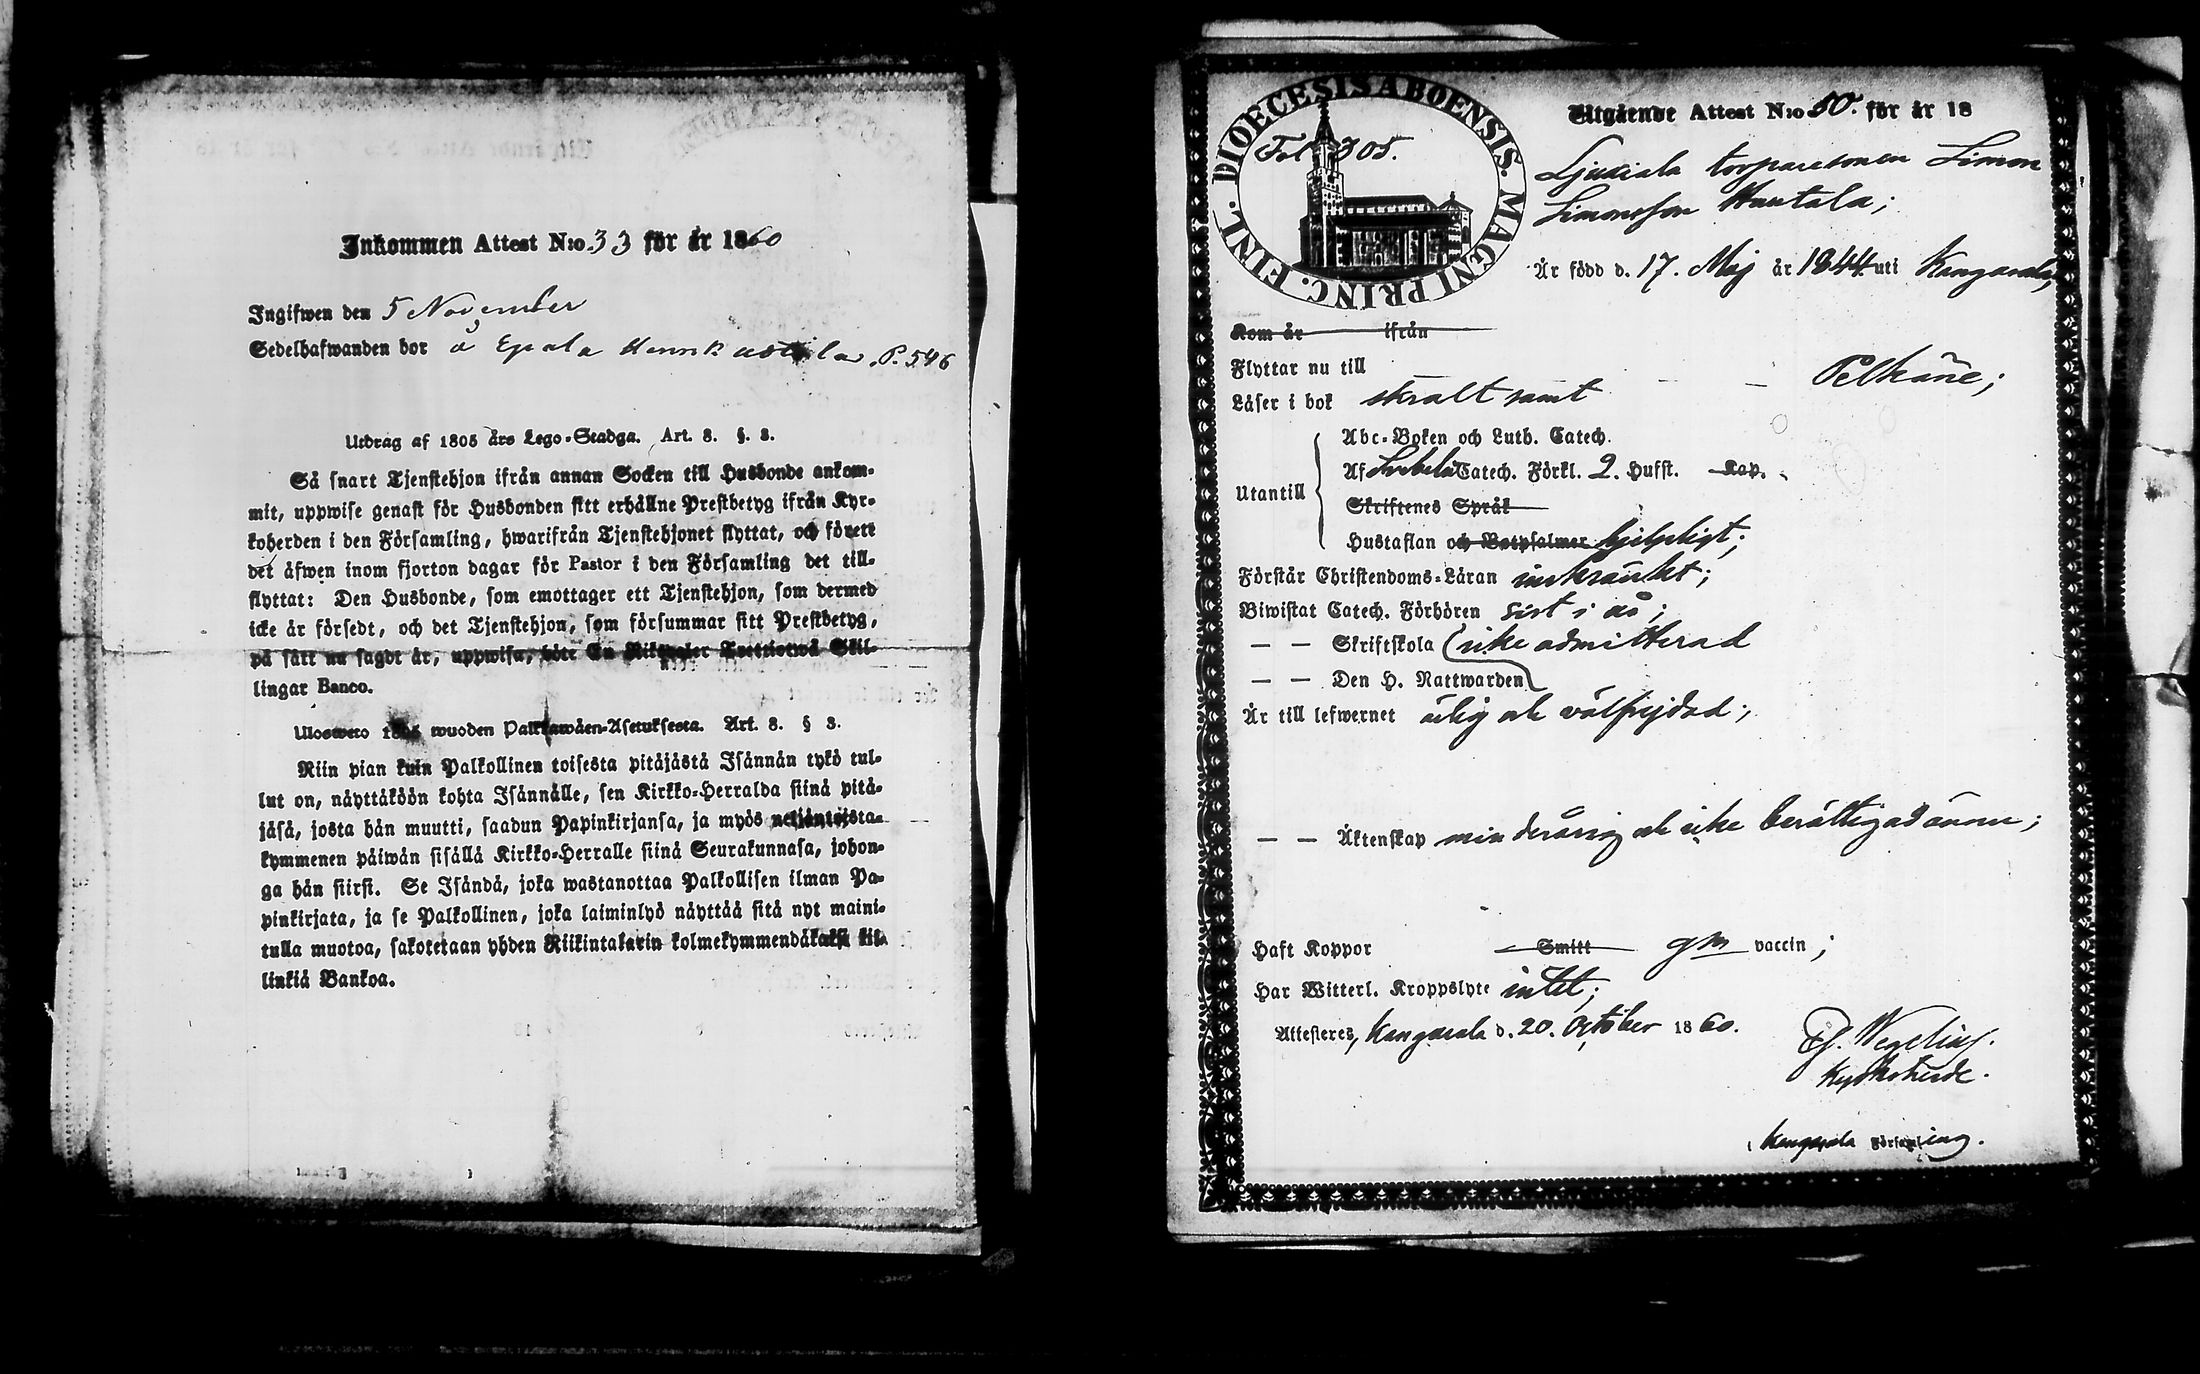 Inkommen Attest N:o 33 för år 1860
Ingifwen den 5 November
Sedelhafwanden bor å Epala P. 546
Utdrag af 1805 års Lego-Stadga. Art. 8. §. 8.
Så snart Tjenstehjon ifrån annan Socken till Husbonde ankom-
mit, uppwise genast för Husbonden sitt erhållne Prestbetyg ifrån Kyr-
koherden i den Församling, hwarifrån Tjenstehjonet flyttat, och förete
det äfwen inom fjorton dagar för Pastor i den Församling det till-
flyttat: Den Husbonde, som emottager ett Tjenstehjon, som dermed
icke är försedt, och det Tjenstehjon, som försummar sitt Prestbetyg,
på sätt nu sagdt är, uppwisa, böte En Riksdaler Trettiotwå Skil-
lingar Banco.
Ulosweto 1805 wuoden Palkkawäen-Asetuksesta. Art. 8. § 8.
Niin pian kuin Palkollinen toisesta pitäjästä Isännän tykö tul-
lut on, näyttäköön kohta Isännälle, sen Kirkko-Herralda siinä pitä-
jäsä, josta hän muutti, saadun Papinkirjansa, ja myös neljäntoista-
kymmenen päiwän sisällä Kirkko-Herralle siinä Seurakunnasa, johon-
ga hän siirsi. Se Isändä, joka wastanottaa Palkollisen ilman Pa-
pinkirjata, ja se Palkollinen, joka laiminlyö näyttää sitä nyt maini-
tulla muotoa, sakotetaan yhden Riikintalarin kolmekymmendäkaksi kil-
linkiä Bankoa.
DIOECESIS ABOENSIS. MAGNI PRINC. FINL.
Fol 305.
Utgående Attest N:o 50. för år 18
Ljuxiala torparesonen Simon
Simonsson Hautala;
Är född d. 17. Maj år 1844 uti Kangasala,
Kom år ifrån
Flyttar nu till Pelkäne;
Läser i bok skralt samt
Utantill
Abc-Boken och Luth. Catech.
Af Svebelii Catech. Förkl. 2. Hufst. Kap.
Skriftenes Språk
Hustaflan och Botpsalmer hjelpligt;
Förstår Christendoms-Läran inskränkt;
Biwistat Catech. Förhören sist i år;
— — Skriftskola icke admitterad
— — Den H. Nattwarden
Är till lefwernet ärlig och välfrejdad;
— — Äktenskap minderårig och icke berättigad ännu;
Haft Koppor Smitt gm vaccin;
Har Witterl. Kroppslyte intet;
Attesteres, Kangasala d. 20. October 1860.
Wegelius.
Kyrkoherde.
i Kangasala Församling.